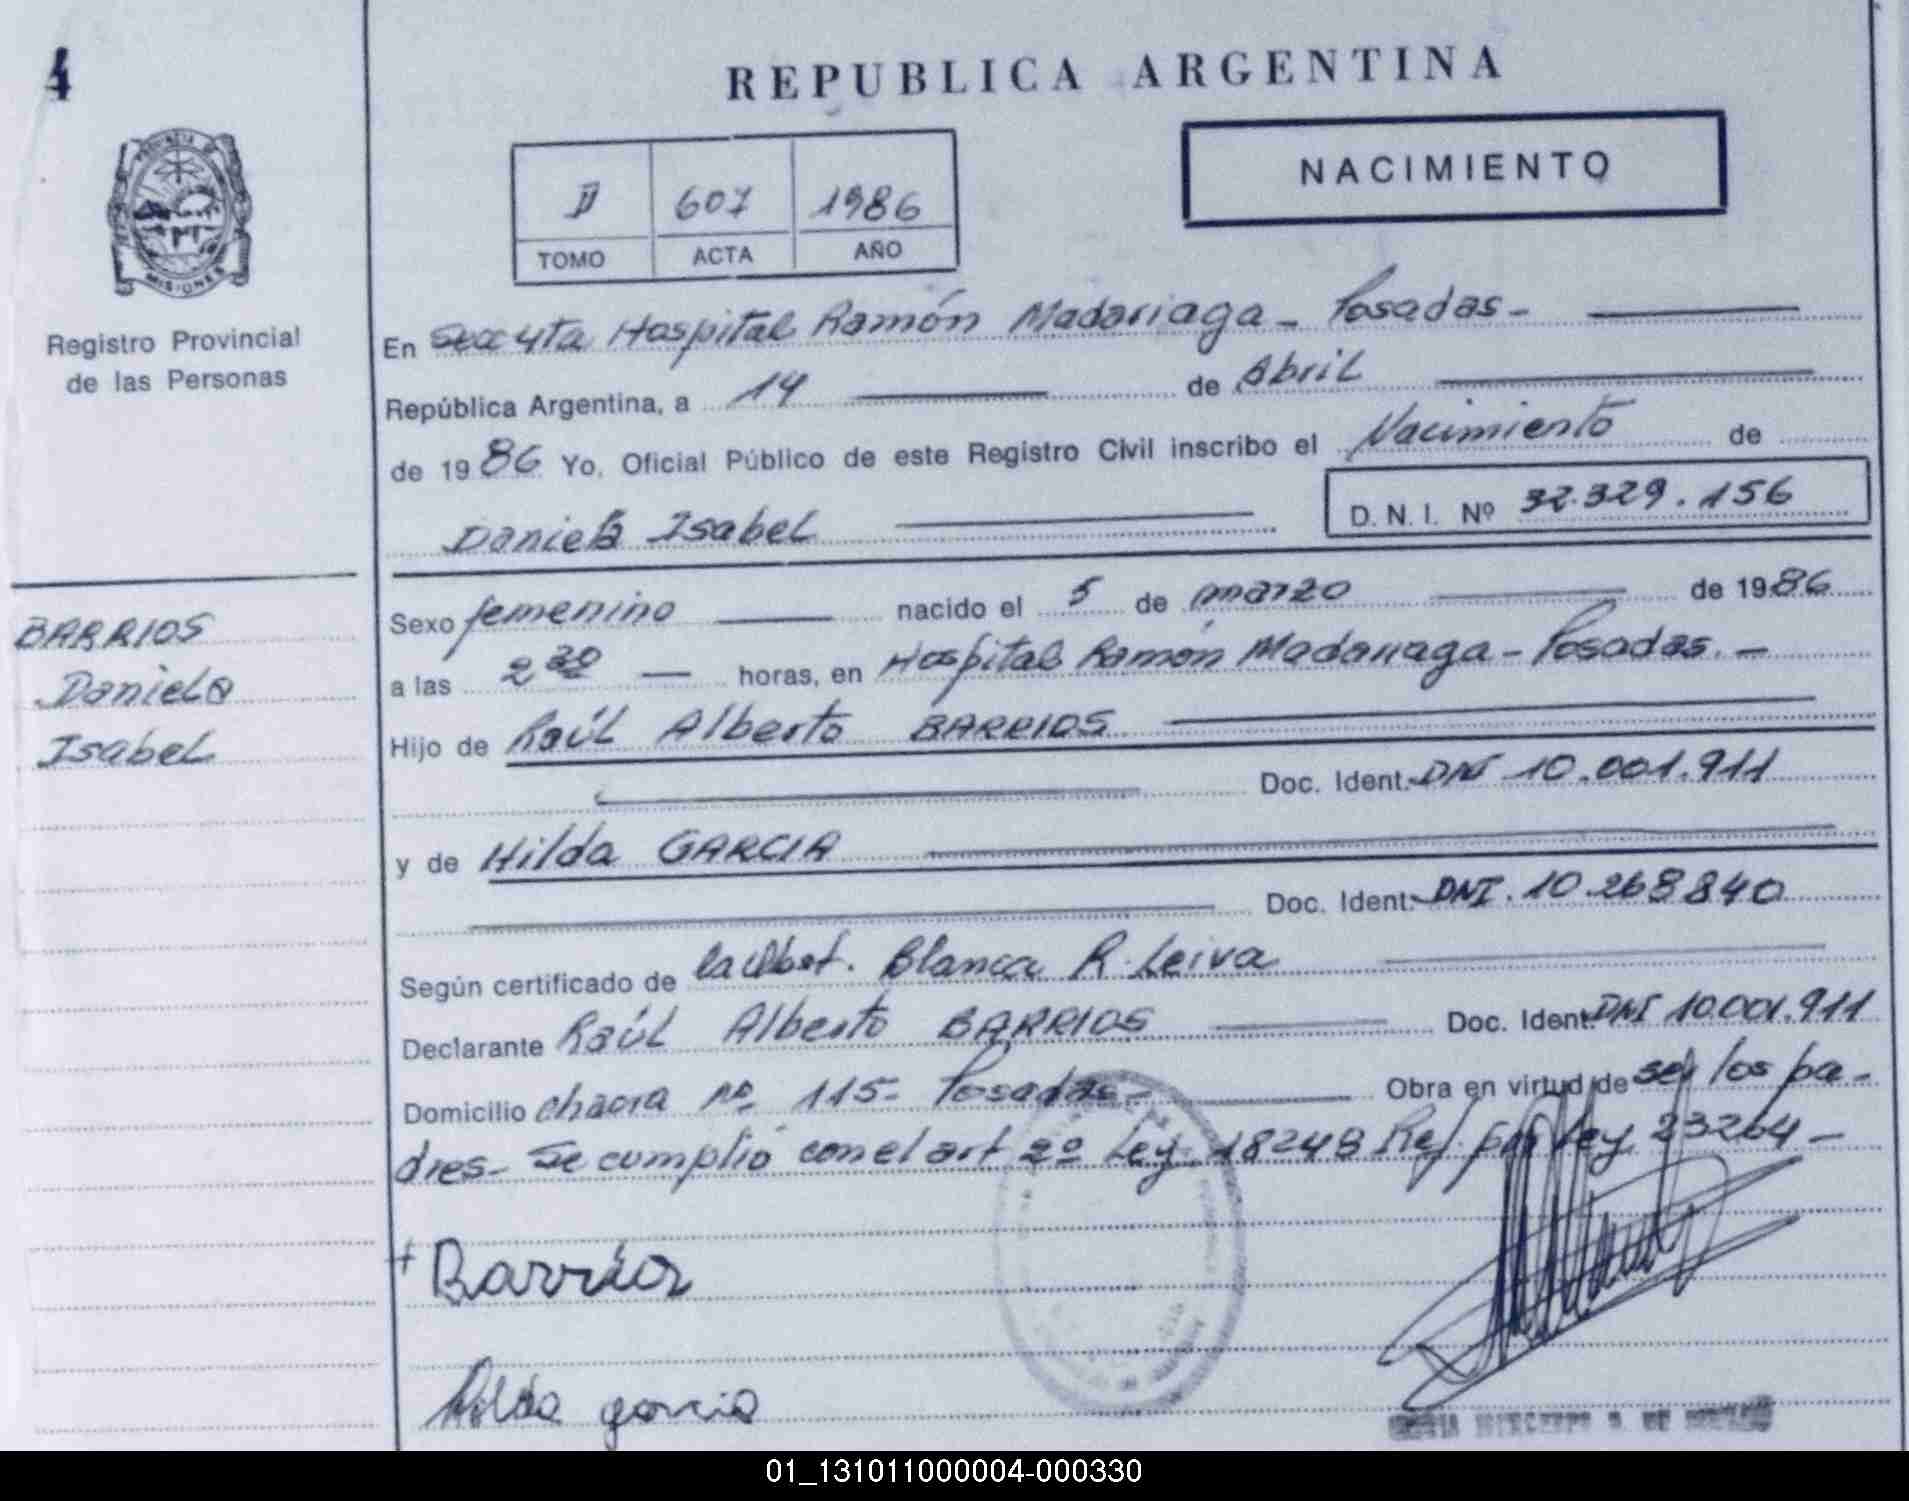 4
REPUBLICA ARGENTINA
NACIMIENTO
II 607 1986
TOMO ACTA AÑO
PROVINCIA DE
MISIONES
Registro Provincial
de las Personas
En Hospital Ramón Madariaga - Posadas -
República Argentina, a 14 de Abril
de 1986 Yo, Oficial Público de este Registro Civil inscribo el Nacimiento de
Daniela Isabel D. N. I. Nº 32.329.156
BARRIOS
Daniela
Isabel
Sexo femenino nacido el 5 de marzo de 1986
a las 2 30 horas, en Hospital Ramón Madariaga - Posadas. -
Hijo de Raúl Alberto BARRIOS
Doc. Ident. DNI 10.001.911
y de Hilda GARCIA
Doc. Ident. DNI. 10.268840
Según certificado de la Obst. Blanca R. Leiva
Declarante Raúl Alberto BARRIOS Doc. Ident. DNI 10.001.911
Domicilio chacra nº 115 - Posadas - Obra en virtud de ser los pa-
dres - Se cumplió con el art 2º Ley. 18248 Ref. por Ley 23264 -
+ Barrios
Hilda garcia
01_131011000004-000330